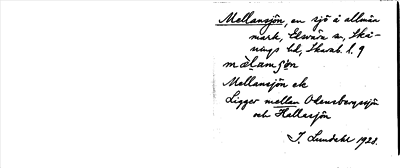 Mellansjön, en sjö å allmän
mark, Elsvära sn, Skå-
nings hd, Skarab. l. 9
mälansjön
Mellansjön ek
Ligger mellan Odensbergssjö
och Hallasjön
J. Lundahl 1928.